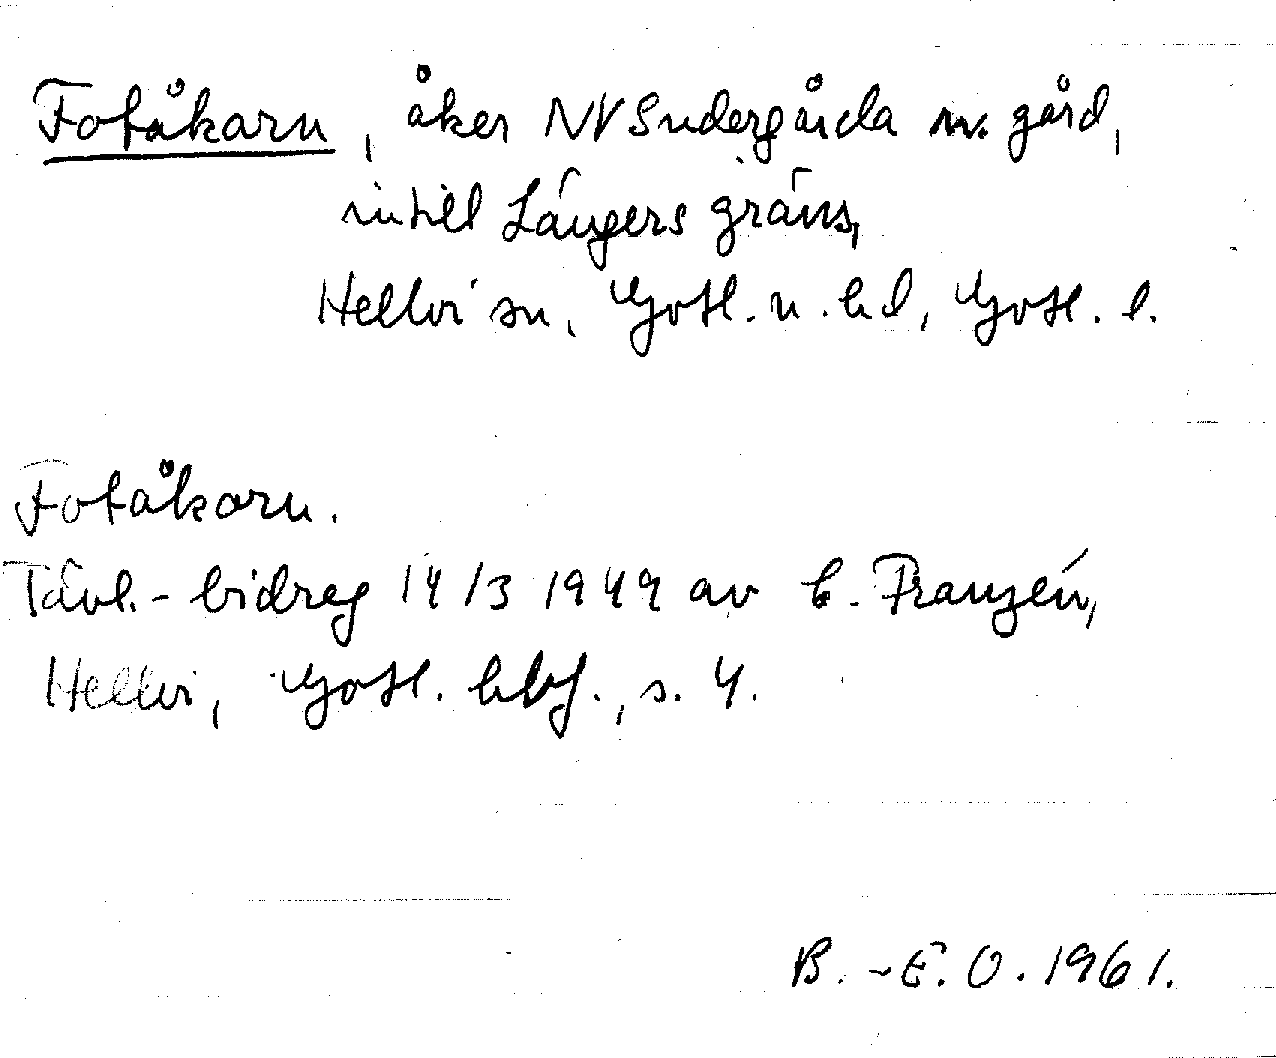 Fotåkarn, åker NV Sudergårda nv. gård,
intill Längers gräns,
Hellvi sn, Gotl. n. hd, Gotl. l.
Fotåkarn.
Tävl.-bidrag 14/3 1949 av E. Franzén,
Hellvi, Gotl. hbf., s. 4.
B.-E. O. 1961.